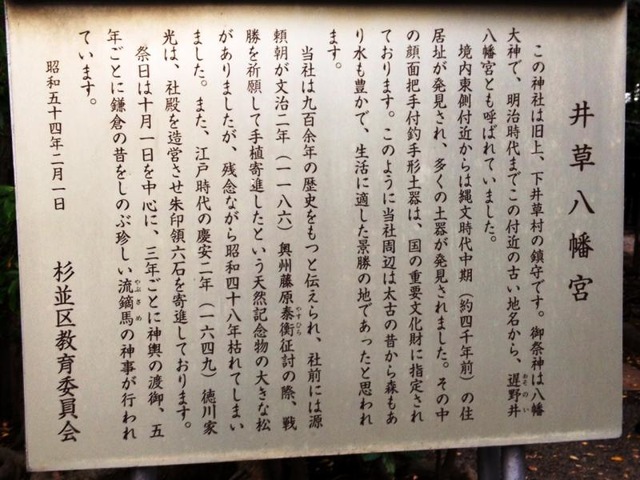 井草八幡宮
この神社は旧上、下井草村の鎮守です。御祭神は八幡
大神で、明治時代までこの付近の古い地名から、遅野井
おそのい
八幡宮とも呼ばれていました。
境内東側付近からは縄文時代中期（約四千年前）の住
居址が発見され、多くの土器が発見されました。その中
の顔面把手付釣手形土器は、国の重要文化財に指定され
ております。このように当社周辺は太古の昔から森もあ
り水も豊かで、生活に適した景勝の地であったと思われ
ます。
当社は九百余年の歴史をもつと伝えられ、社前には源
頼朝が文治二年（一一八六）奥州藤原泰衡征討の際、戦
やすひら
勝を祈願して手植寄進したという天然記念物の大きな松
がありましたが、残念ながら昭和四十八年枯れてしまい
ました。また、江戸時代の慶安二年（一六四九）徳川家
光は、社殿を造営させ朱印領六石を寄進しております。
祭日は十月一日を中心に、三年ごとに神輿の渡御、五
年ごとに鎌倉の昔をしのぶ珍しい流鏑馬の神事が行われ
やぶさめ
ています。
昭和五十四年二月一日
杉並区教育委員会